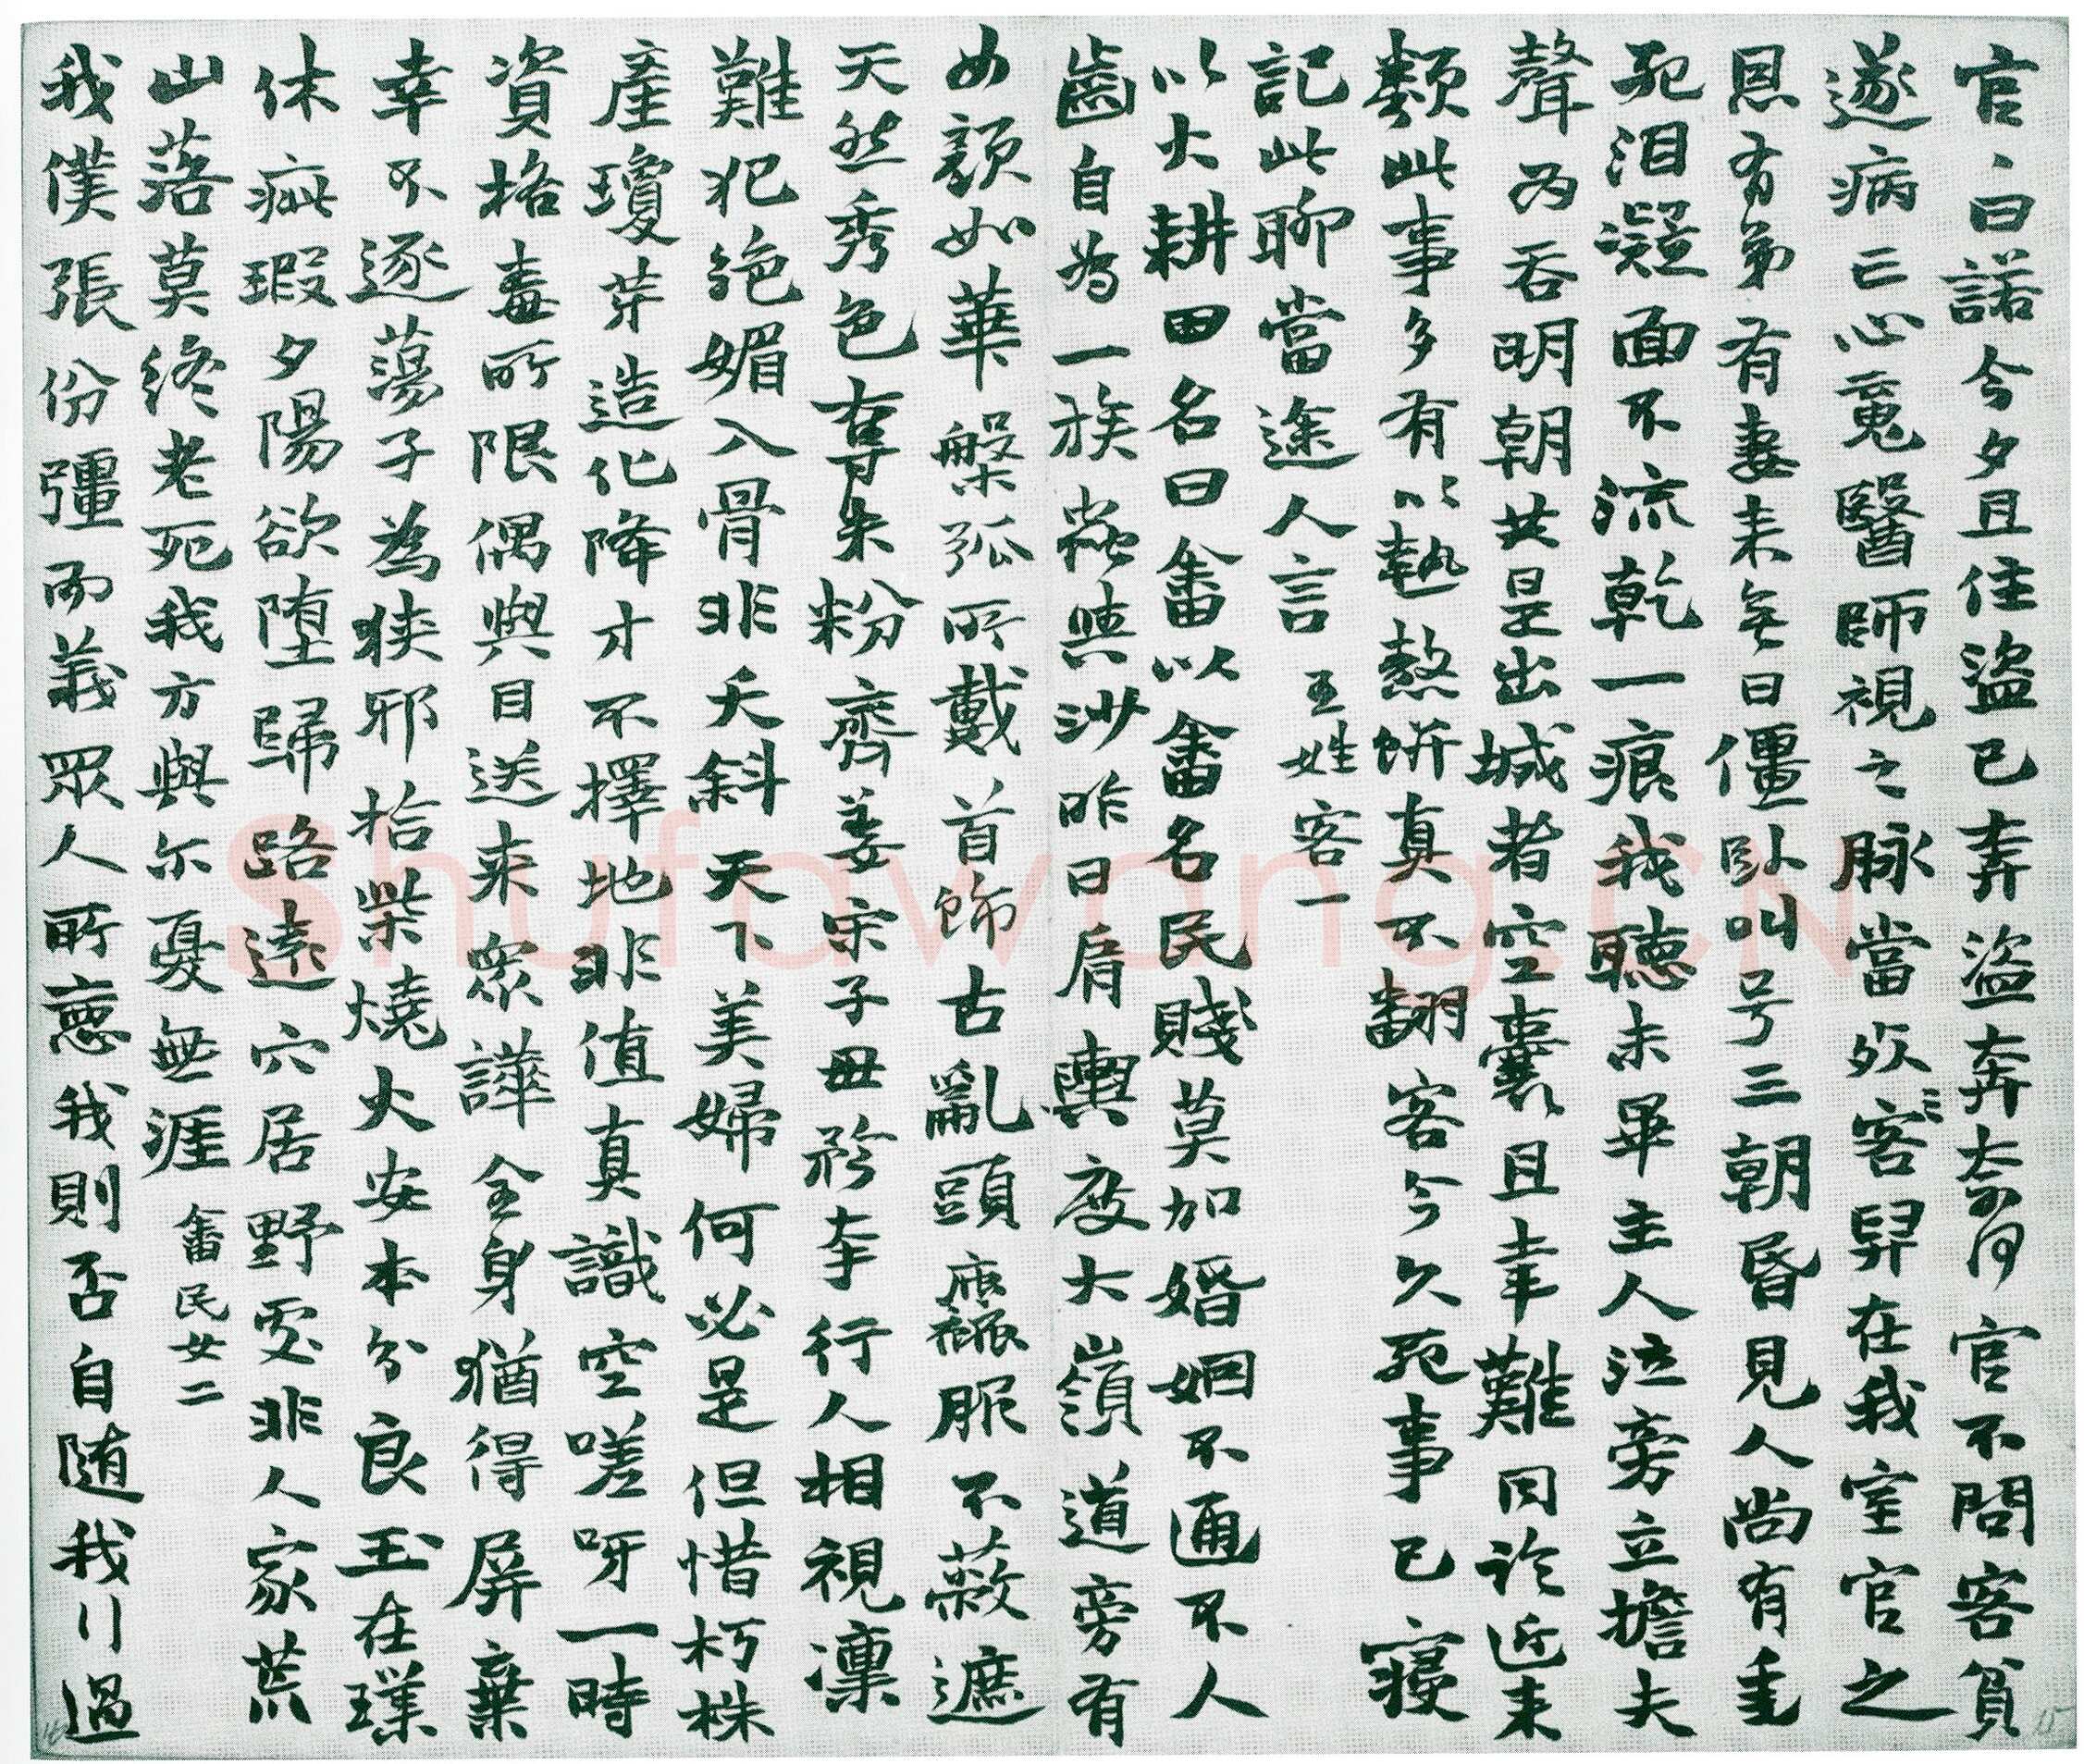 官曰諾今夕且住盜已奔盜奔奈何官不問客貧
遂病亡心冤醫師視之脉當歿客舁在我室官之
恩有弟有妻来無日僵臥叫号三朝昏見人尚有垂
死泪凝面不流乾一痕我聽未畢主人泣旁立擔夫
聲為吞明朝共是出城者空囊且幸難同論近来
類此事多有以熱熬餅真不翻客今久死事已寢
記此聊當途人言 王姓客一
以火耕田名曰畬以畬名民賤莫加婚姻不通不人
齒自為一族蟲與沙昨日肩輿度大嶺道旁有
女顏如華槃瓠所戴首飾古亂頭麤服不蔽遮
天然秀色奪朱粉齊姜宋子毋矜夸行人相視凜
難犯絕媚入骨非夭斜天下美婦何必是但惜朽株
產瓊芽造化降才不擇地非值真識空嗟呀一時
資格毒所限偶與目送来衆譁全身猶得屏棄
幸不逐蕩子為狹邪拾柴燒火安本分良玉在璞
休疵瑕夕陽欲墮歸路遠穴居野處非人家荒
山落莫終老死我方與尔憂無涯 畬民女二
我僕張份彊而義眾人所憃我則否自随我行過
shufawang.CN